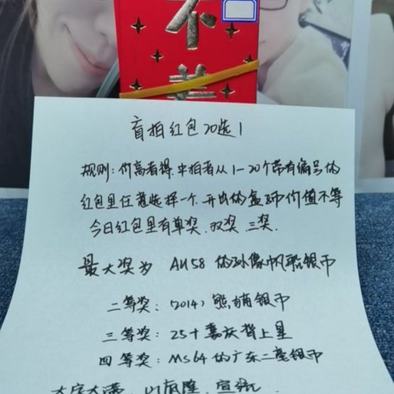 盲拍红包20选1
规则:价高者得.中拍者从1-20个带有编号的
红包里任意选择一个.开出的盒币价值不等
今日红包里有单奖.双奖.三奖.
最大奖为 AU58 的孙像帆船银币
二等奖:(2014)熊猫银币
三等奖:25十嘉庆背上星
四等奖:MS64的广东二毫银币